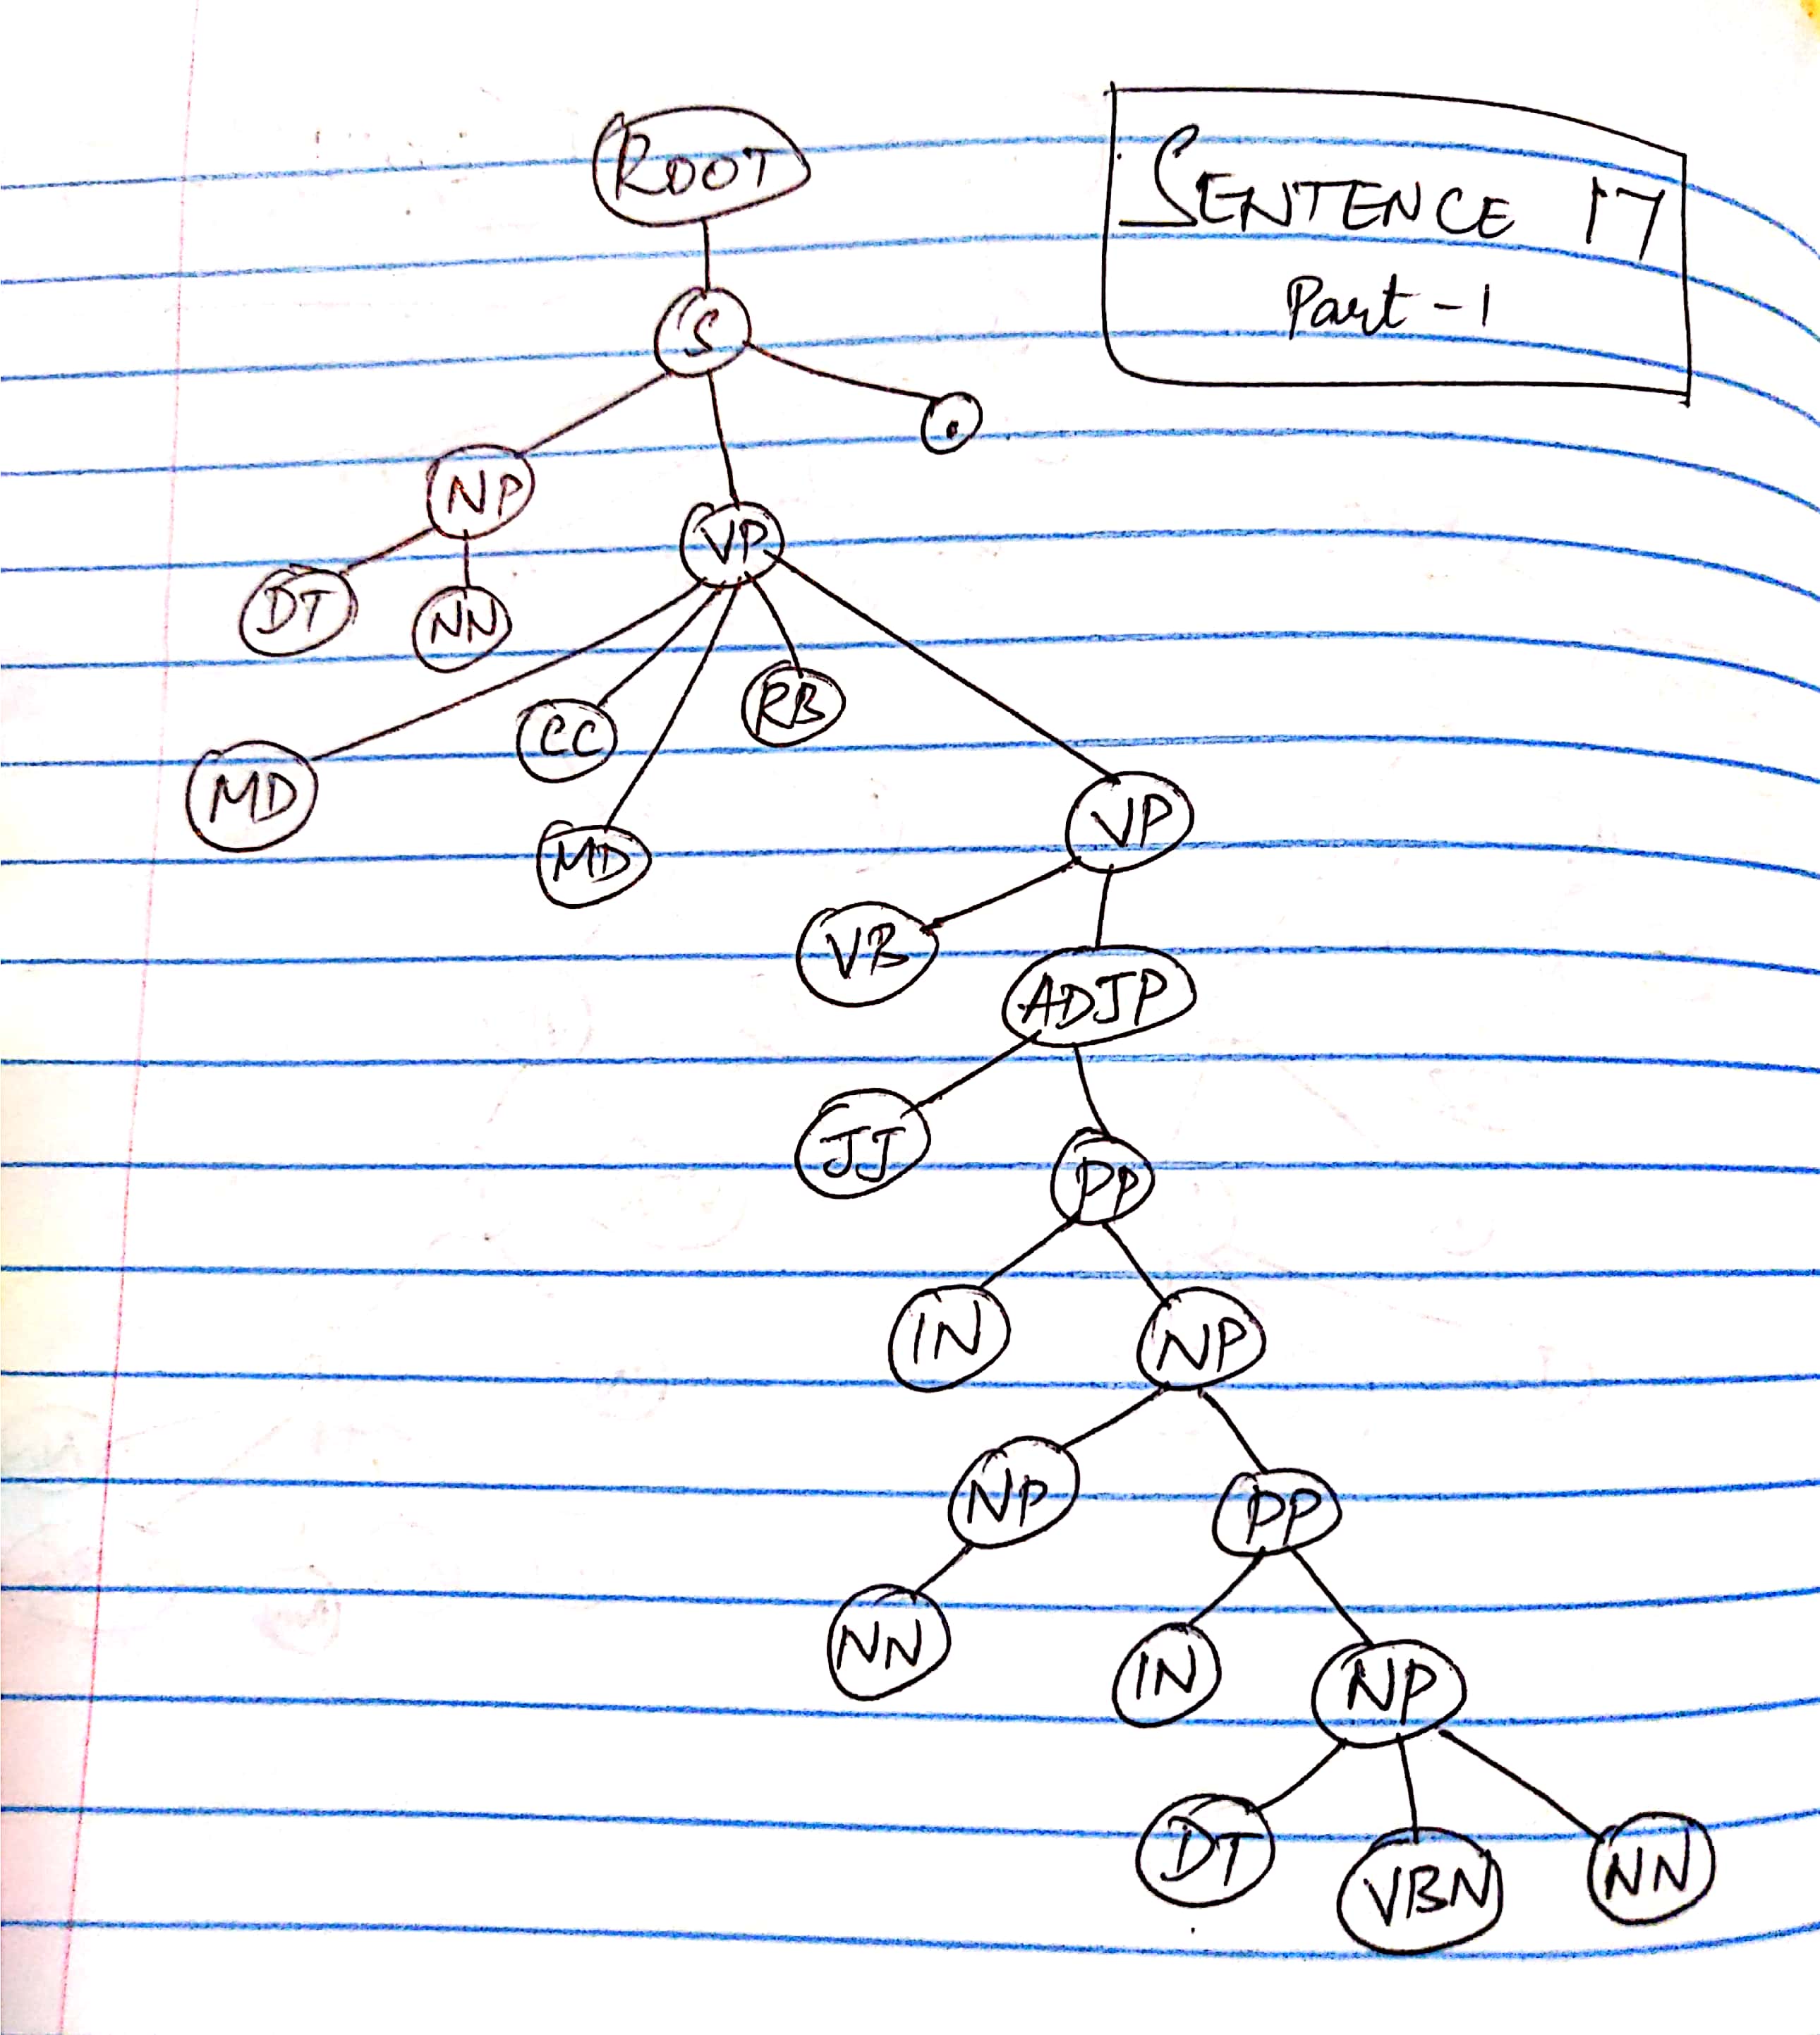 ROOT
SENTENCE 17
Part-1
S
.
NP
VP
DT
NN
RB
CC
MD
MD
VP
VB
ADJP
JJ
PP
IN
NP
NP
PP
NN
IN
NP
DT
VBN
NN